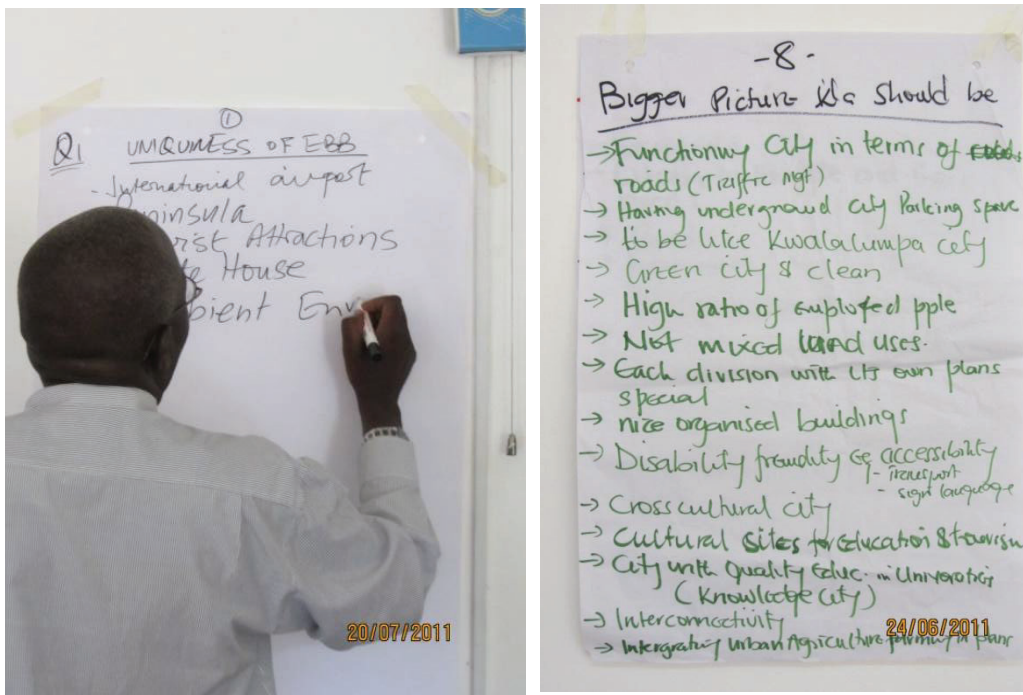 ①
Q1 UNIQUINESS OF EBB
- International airport
ninsula
rist Attractions
te House
bient Env
20/07/2011
- 8 -
Bigger Picture K'la should be
→ Functioning City in terms of
roads (Traffic mgt)
→ Having underground city Parking space
→ to be like Kwalalumpa city
→ Green city & clean
→ High ratio of employed pple
→ Not mixed land uses.
→ Each division with its own plans
special
→ nize organised buildings
→ Disability frendity eg accessibility
- Transport
- sign language
→ Cross cultural city
→ Cultural sites for education & tourism
→ City with Quality Educ. in Universities
(Knowledge city)
→ Interconnectivity
24/06/2011
→ Intergrating urban Agriculture farming in plans